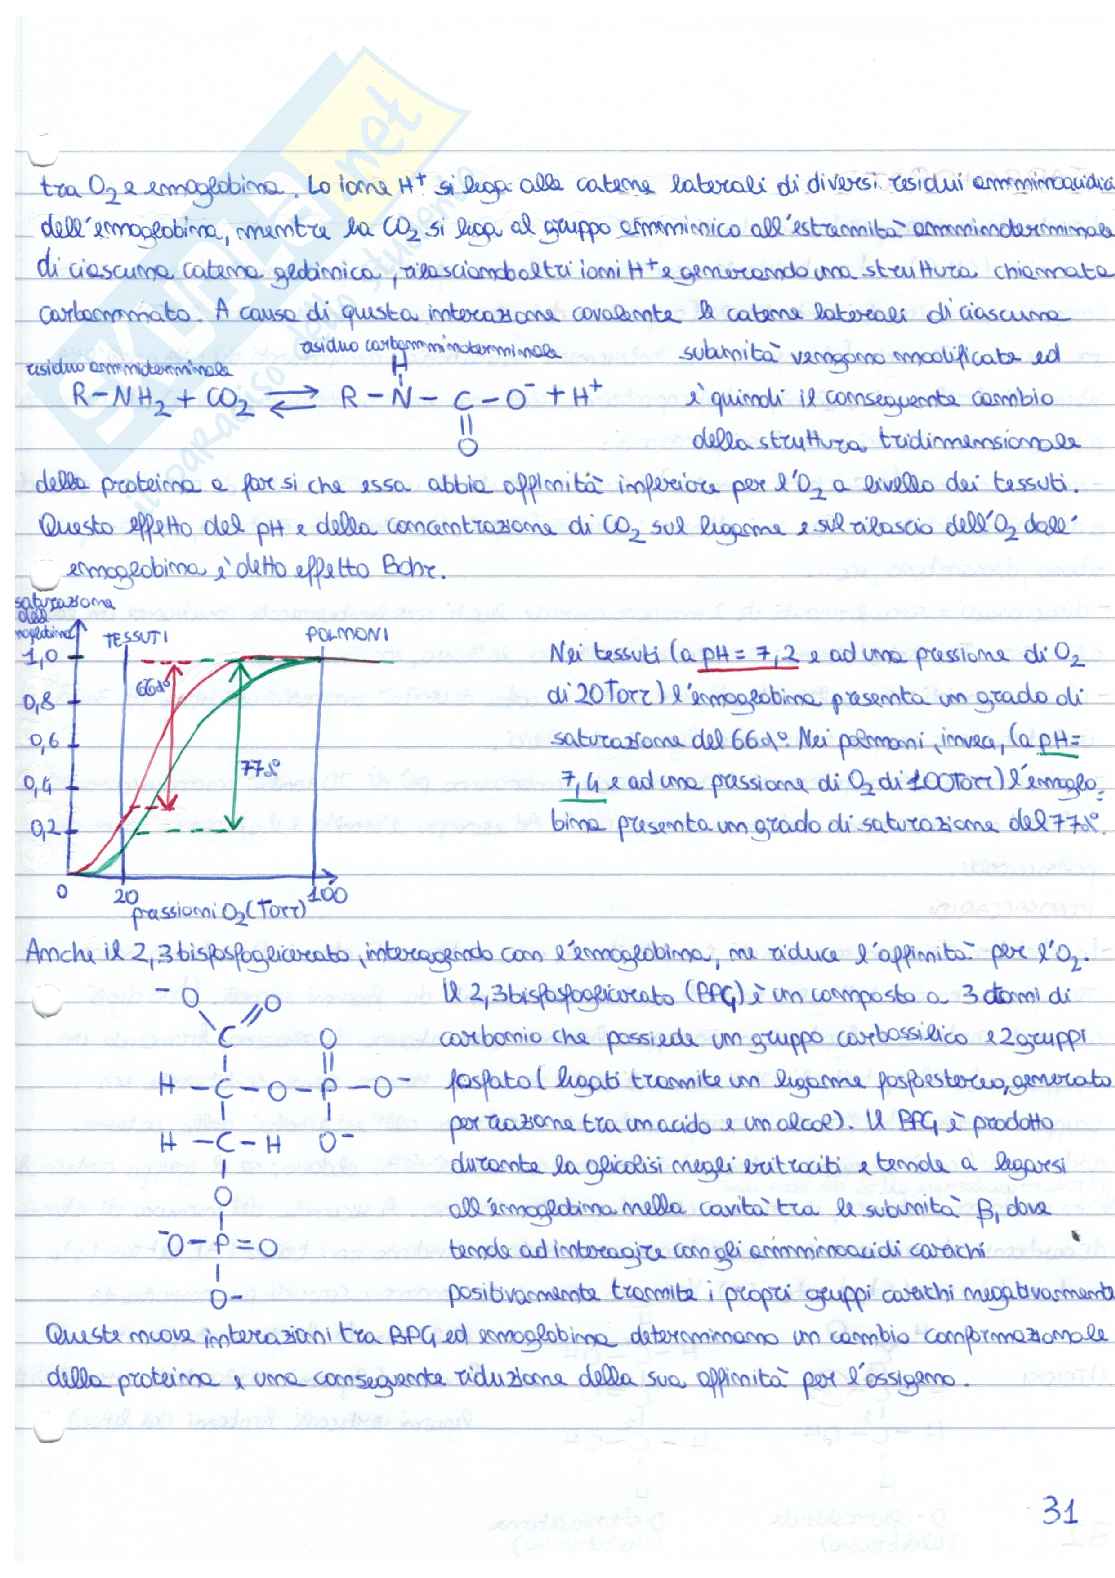 tra O₂ e emoglobina. Lo ione H⁺ si lega alle catene laterali di diversi residui amminoacidici
dell'emoglobina, mentre la CO₂ si lega al gruppo amminico all'estremità amminoterminale
di ciascuna catena globinica, rilasciando altri ioni H⁺ e generando una struttura chiamata
carbammato. A causa di questa interazione covalente le catene laterali di ciascuna
residuo carbamminoterminale
subunità vengono modificate ed
residuo amminoterminale
H
R-NH₂ + CO₂ ⇌ R-N-C-O⁻ + H⁺
è quindi il conseguente cambio
O
della struttura tridimensionale
della proteina a far si che essa abbia affinità inferiore per l'O₂ a livello dei tessuti.
Questo effetto del pH e della concentrazione di CO₂ sul legame e sul rilascio dell'O₂ dall'
emoglobina è detto effetto Bohr.
saturazione
dell'
emoglobina
TESSUTI
POLMONI
1,0
66%
0,8
0,6
77%
0,4
0,2
0
20
100
pressioni O₂ (Torr)
Nei tessuti (a pH = 7,2 e ad una pressione di O₂
di 20 Torr) l'emoglobina presenta un grado di
saturazione del 66%. Nei polmoni, invece, (a pH =
7,4 e ad una pressione di O₂ di 100 Torr) l'emoglo=
bina presenta un grado di saturazione del 77%.
Anche il 2,3 bisfosfoglicerato, interagendo con l'emoglobina, ne riduce l'affinità per l'O₂.
⁻O O
C O
H-C-O-P-O⁻
H-C-H O⁻
O
⁻O-P=O
O⁻
Il 2,3 bisfosfoglicerato (BPG) è un composto a 3 atomi di
carbonio che possiede un gruppo carbossilico e 2 gruppi
fosfato (legati tramite un legame fosfoestereo, generato
per reazione tra un acido e un alcol). Il BPG è prodotto
durante la glicolisi negli eritrociti e tende a legarsi
all'emoglobina nella cavità tra le subunità β, dove
tende ad interagire con gli amminoacidi carichi
positivamente tramite i propri gruppi carichi negativamente
Queste nuove interazioni tra BPG ed emoglobina determinano un cambio conformazionale
della proteina e una conseguente riduzione della sua affinità per l'ossigeno.
31